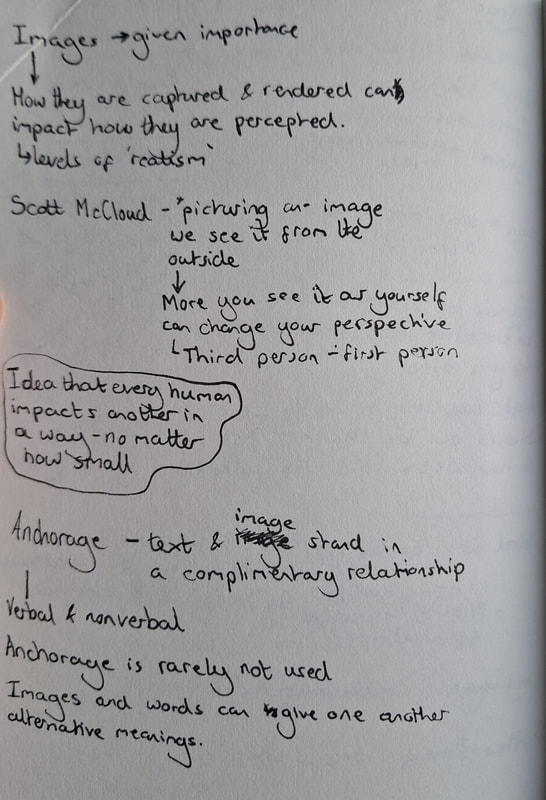 Images → given importance
↓
How they are captured & rendered can
impact how they are percepted.
↳ levels of 'realism'
Scott McCloud - "picturing an image
we see it from the
outside
↓
More you see it as yourself
can change your perspective
↳ Third person - first person
Idea that every human
impacts another in
a way - no matter
how small
image
Anchorage - text & stand in
a complimentary relationship
Verbal & nonverbal
Anchorage is rarely not used
Images and words can give one another
alternative meanings.